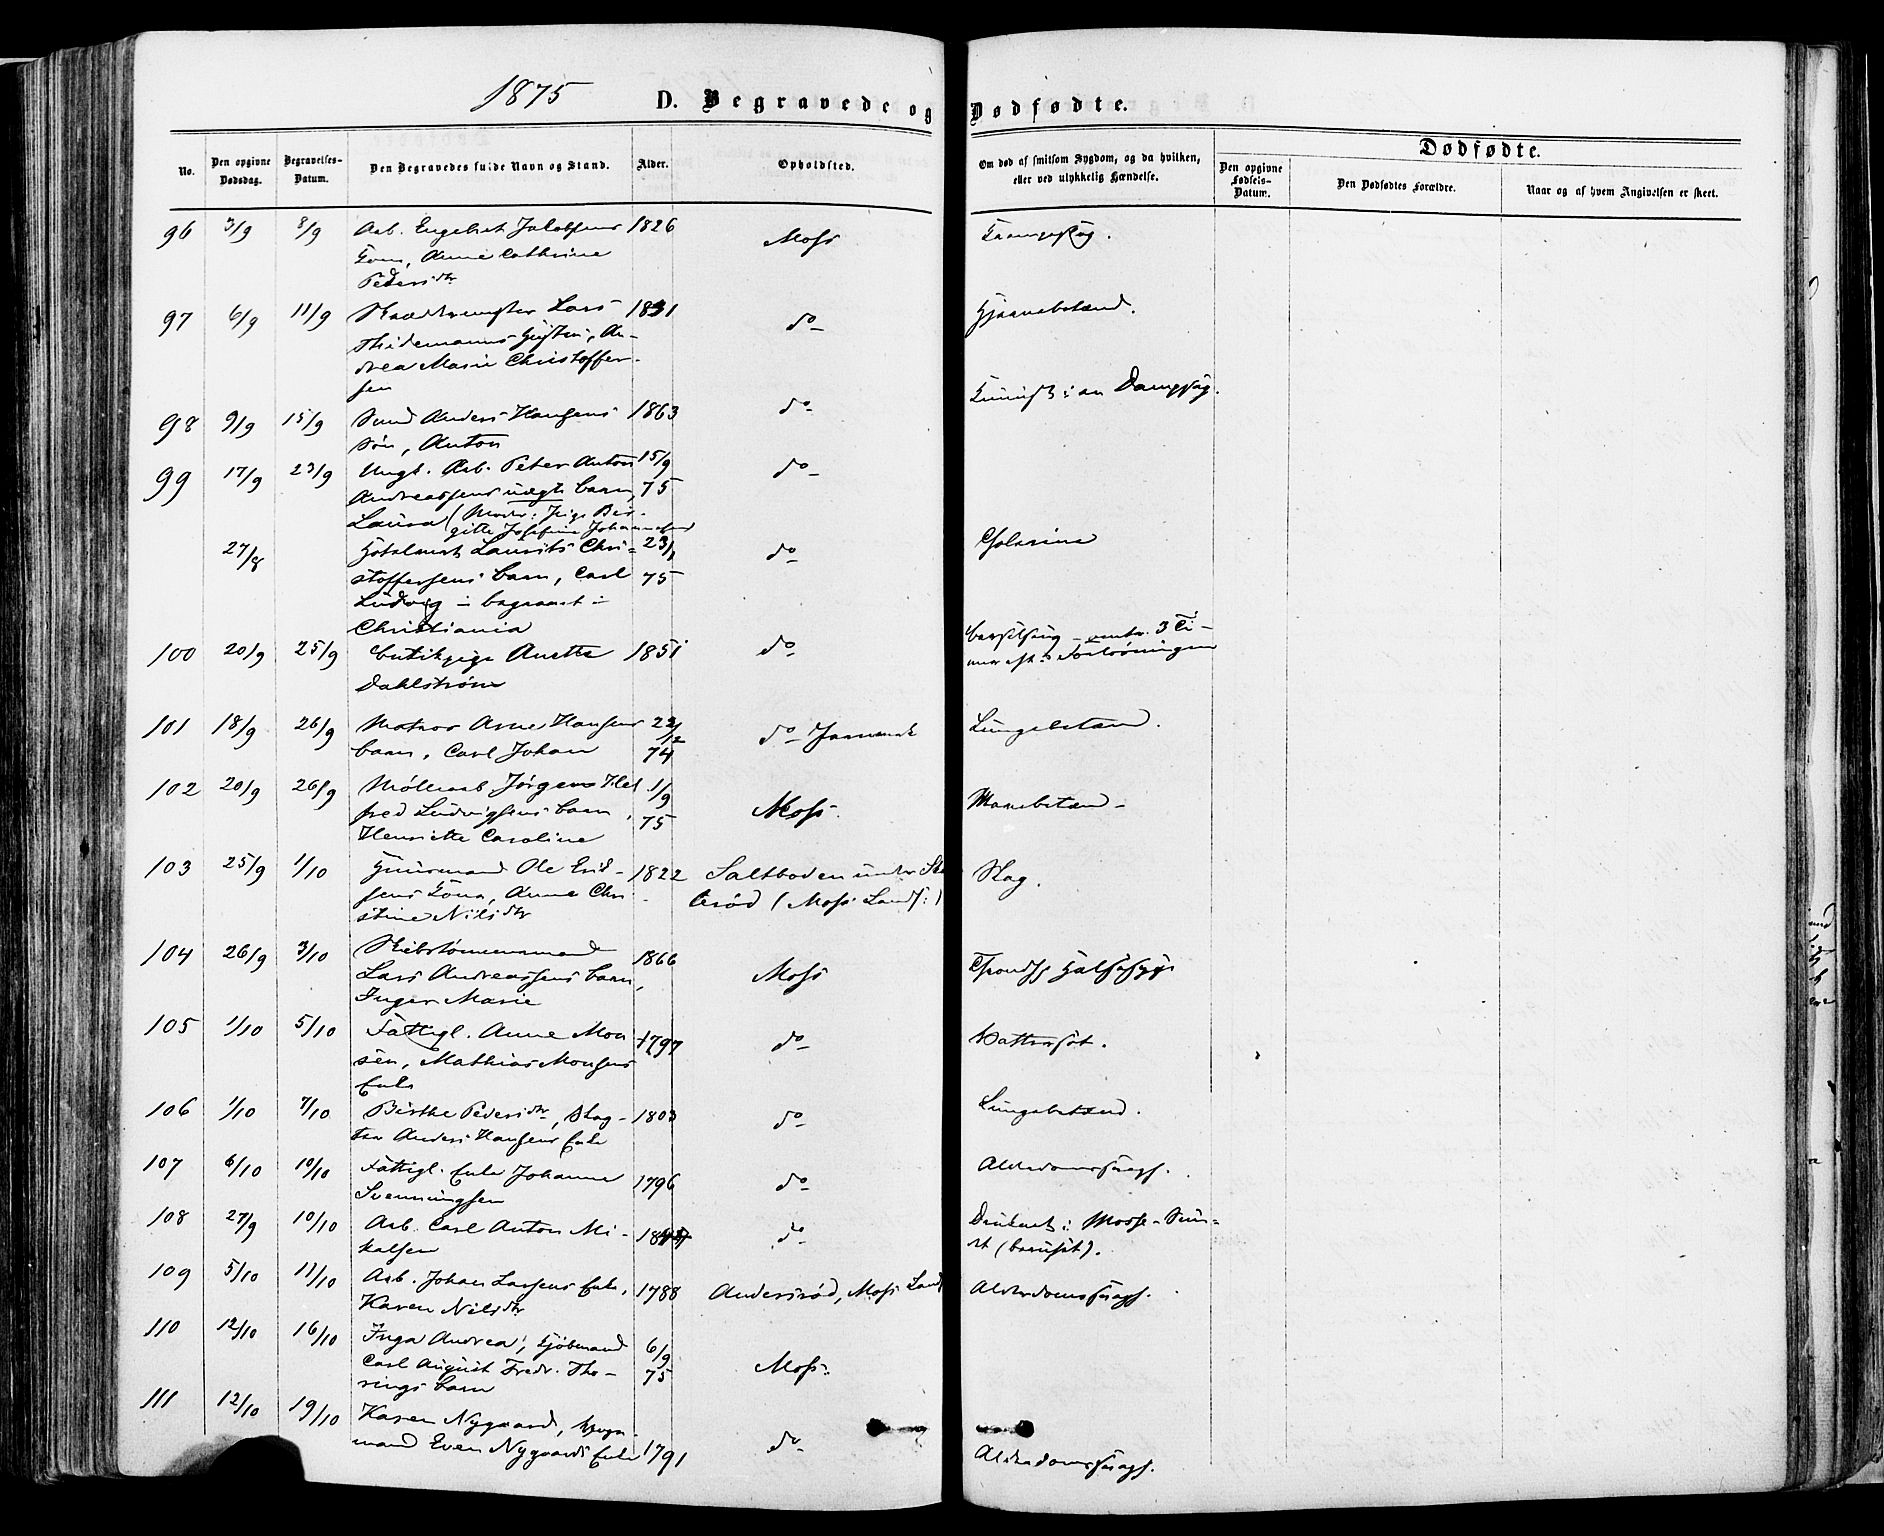 1875
D. Begravede og Dødfødte.
No.
Den opgivne Dødsdag.
Begravelses-Datum.
Den Begravedes fulde Navn og Stand.
Alder.
Opholdsted.
Om død af smitsom Sygdom, og da hvilken, eller ved ulykkelig Hændelse.
Dødfødte.
Den opgivne Fødsels-Datum.
Den Dødfødtes Forældre.
Naar og af hvem Angivelsen er skeet.
96 3/9 8/9 Arb. Engebret Jakobsens 1826 Moss
Kone, Anne Cathrine
Pedersdtr
97 6/9 11/9 Lars 1831 do Hjernebetænd.
Thidemanns Hustru, An-
drea Marie Christoffer-
sen
98 9/9 15/9 Smed Anders Hansens 1863 do Dampsag.
Søn, Anton
99 17/9 23/9 Ungk. Arb. Peter Anton 15/9 do
Andreassens uægte barn, 75
Laura (Moder: Pige Bir-
gitte Josefine Johannesen
27/8 Laurits Chri- 23/1 do Cholerine
stoffersens barn, Carl 75
Ludvig - begravet i
Christiania
100 20/9 25/9 Butikpige Anette 1851 do Barselseng - omtr. 3 Ti-
Dahlstrøm mer eft. Forløsningen
101 18/9 26/9 Matros Arne Hansens 22/12 do Lungebetænd.
barn, Carl Johan 74
102 20/9 26/9 Møllearb. Jørgen 1/9 Moss. Mavebetænd -
fred Ludvigsens barn, 75
Henriette Caroline
103 25/9 1/10 Huusmand Ole Erik- 1822 Saltboden under Slag.
sens Kone, Anne Chri- (Moss Lands:)
stine Nilsdtr
104 26/9 3/10 Skibstømmermand 1866 Moss Halssyge
Lars Andreassens barn,
Inger Marie
105 1/10 5/10 Fattigl. Anne Mon 1797 do Vattersot.
sen, Mathias Monsens
Enke
106 1/10 7/10 Birthe Pedersdtr, Slag- 1803 do Lungebetænd.
ter Anders Hansens Enke
107 6/10 10/10 Fattigl. Enke Johanne 1796 do Alderdomssvagh.
Svenningsen
108 27/9 10/10 Arb. Carl Anton Mi- do Druknet i Mosse-Sun-
kalsen det (beruset).
109 5/10 11/10 Arb. Johan Larsens Enke, 1788 Andersrød, Moss Land Alderdomssvagh.
Karen Nilsdtr
110 12/10 16/10 Inga Andrea, Kjøbmand 6/9 Moss.
Carl August Fredr. Tho- 75
rings barn
111 12/10 19/10 Karen Nygaard, 1791 do Alderdomssvagh.
mand Even Nygaards Enke